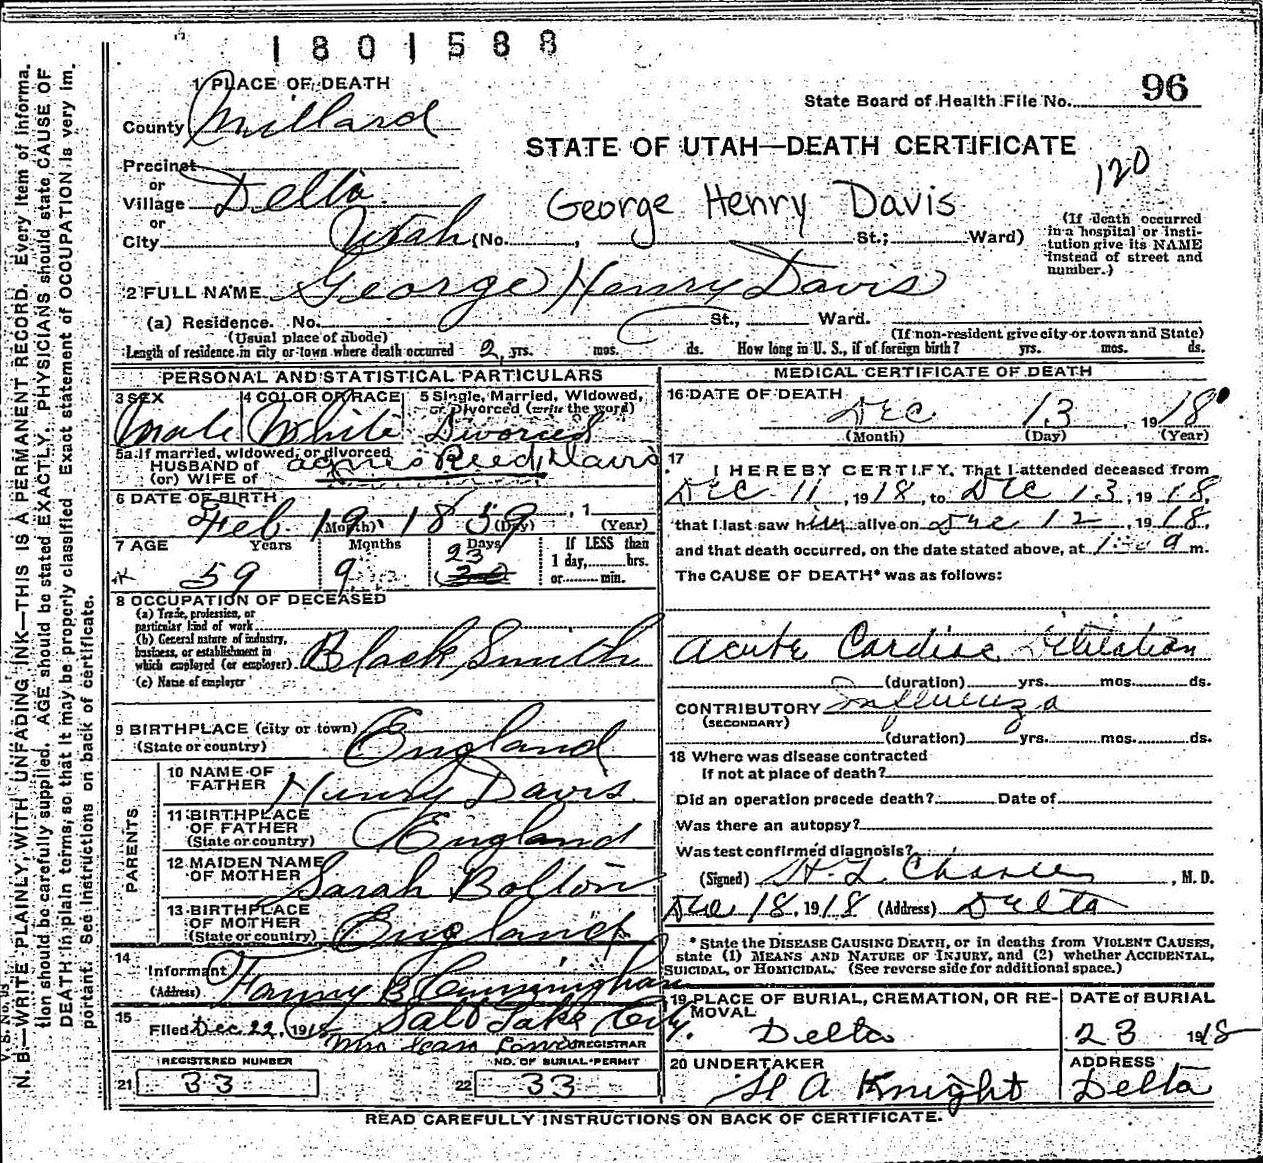 1801588
1 PLACE OF DEATH
96
State Board of Health File No.
County Millard
STATE OF UTAH—DEATH CERTIFICATE
120
Precinct
or
Village Delta
or
City Utah (No. , St.; Ward)
George Henry Davis
(If death occurred
in a hospital or insti-
tution give its NAME
instead of street and
number.)
2 FULL NAME George Henry Davis
(a) Residence. No. St., Ward.
(Usual place of abode) (If non-resident give city or town and State)
Length of residence in city or town where death occurred 2 yrs. mos. ds. How long in U. S., if of foreign birth? yrs. mos. ds.
PERSONAL AND STATISTICAL PARTICULARS
3 SEX 4 COLOR OR RACE 5 Single, Married, Widowed,
or Divorced (write the word)
Male White Divorced
5a If married, widowed, or divorced
HUSBAND of
(or) WIFE of Agnes Reed Davis
6 DATE OF BIRTH
Feb. 19 1859 , 1
(Month) (Day) (Year)
7 AGE Years Months Days If LESS than
1 day, hrs.
or min.
59 9 23
8 OCCUPATION OF DECEASED
(a) Trade, profession, or
particular kind of work
(b) General nature of industry,
business, or establishment in
which employed (or employer) Black Smith
(c) Name of employer
9 BIRTHPLACE (city or town)
(State or country) England
PARENTS
10 NAME OF
FATHER Henry Davis
11 BIRTHPLACE
OF FATHER
(State or country) England
12 MAIDEN NAME
OF MOTHER Sarah Bolton
13 BIRTHPLACE
OF MOTHER
(State or country) England
14
Informant Fanny B Cunningham
(Address) Salt Lake City.
15
Filed Dec. 22, 1918
REGISTRAR
REGISTERED NUMBER NO. OF BURIAL PERMIT
21 33 22 33
MEDICAL CERTIFICATE OF DEATH
16 DATE OF DEATH
Dec 13 1918
(Month) (Day) (Year)
17
I HEREBY CERTIFY, That I attended deceased from
Dec 11, 1918, to Dec 13, 1918,
that I last saw him alive on Dec 12, 1918,
and that death occurred, on the date stated above, at m.
The CAUSE OF DEATH* was as follows:
Acute Cardiac Dilitation
(duration) yrs. mos. ds.
CONTRIBUTORY Influenza
(SECONDARY)
(duration) yrs. mos. ds.
18 Where was disease contracted
if not at place of death?
Did an operation precede death? Date of
Was there an autopsy?
Was test confirmed diagnosis?
(Signed) , M. D.
Dec 18, 1918 (Address) Delta
* State the DISEASE CAUSING DEATH, or in deaths from VIOLENT CAUSES,
state (1) MEANS AND NATURE OF INJURY, and (2) whether ACCIDENTAL,
SUICIDAL, or HOMICIDAL. (See reverse side for additional space.)
19 PLACE OF BURIAL, CREMATION, OR RE-
MOVAL DATE of BURIAL
Delta 23 1918
20 UNDERTAKER ADDRESS
H A Knight Delta
READ CAREFULLY INSTRUCTIONS ON BACK OF CERTIFICATE.
N. B.—WRITE PLAINLY, WITH UNFADING INK—THIS IS A PERMANENT RECORD. Every item of informa-
tion should be carefully supplied. AGE should be stated EXACTLY. PHYSICIANS should state CAUSE OF
DEATH in plain terms, so that it may be properly classified. Exact statement of OCCUPATION is very im-
portant. See instructions on back of certificate.